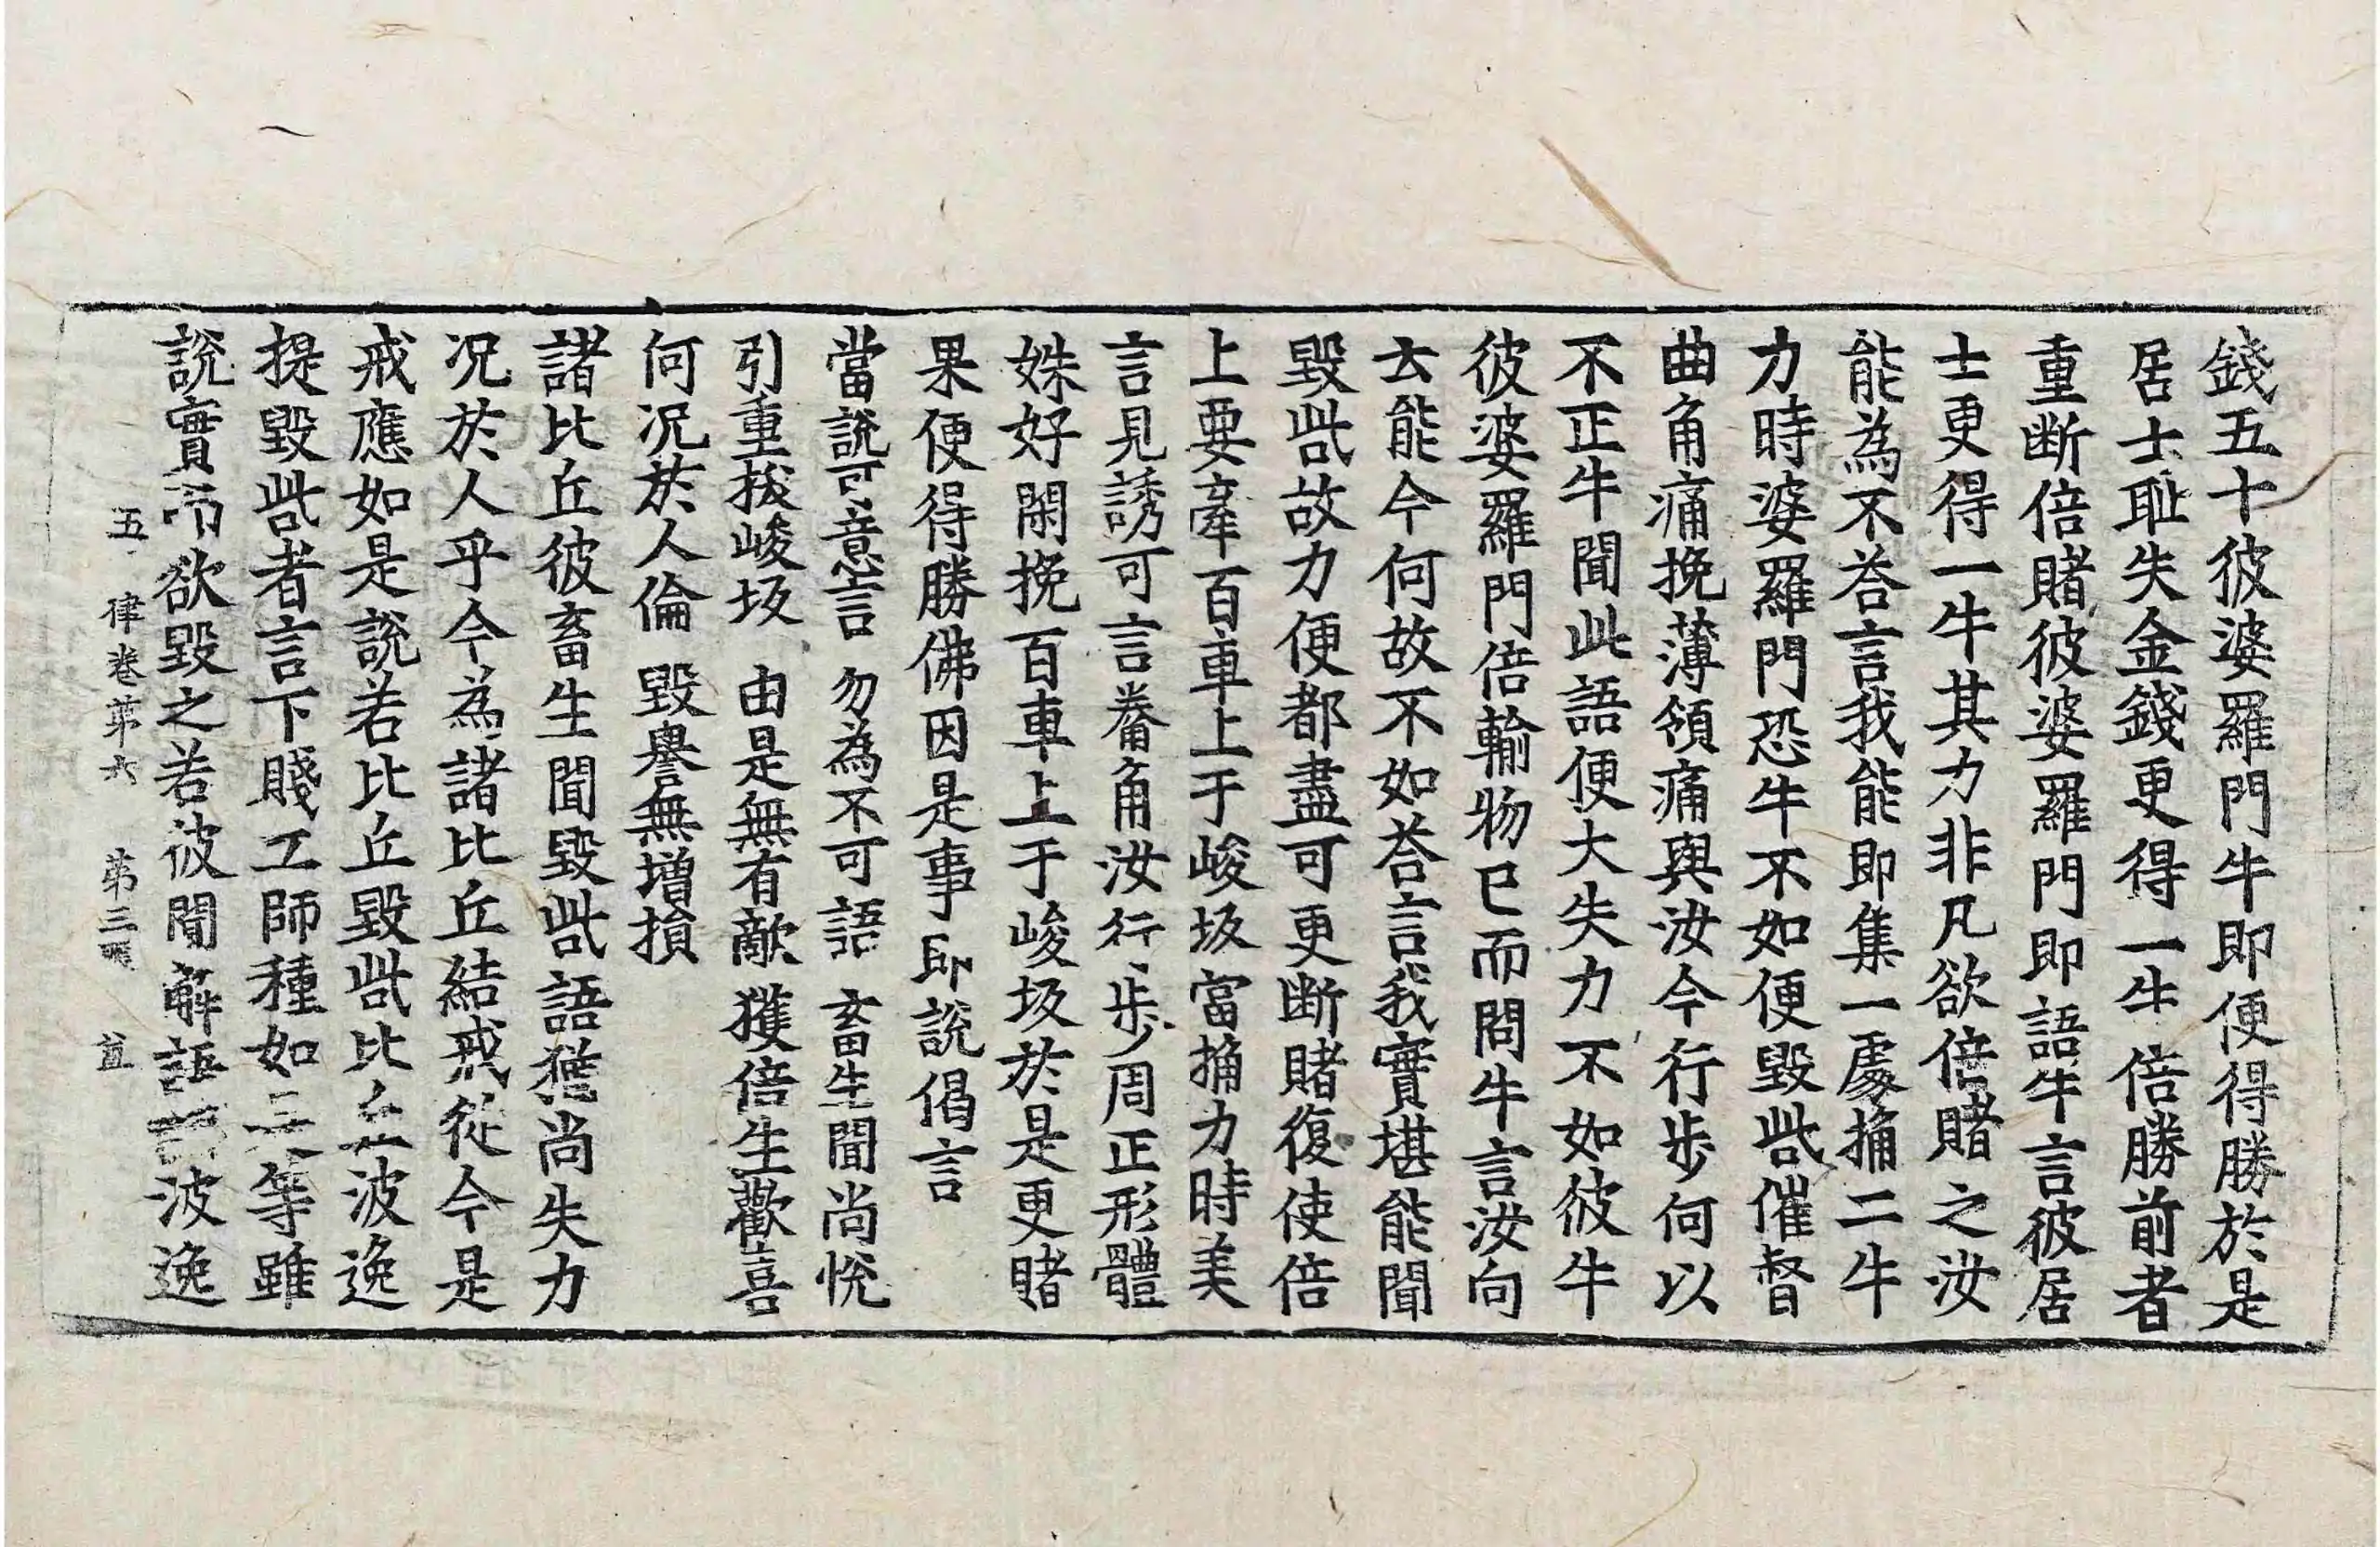 錢五十彼婆羅門牛即便得勝於是
居士耻失金錢更得一牛倍勝前者
重断倍賭彼婆羅門即語牛言彼居
士更得一牛其力非凡欲倍賭之汝
能為不荅言我能即集一處捔二牛
力時婆羅門恐牛不如便毀呰催督
曲角痛挽薄領痛與汝今行步何以
不正牛聞此語便大失力不如彼牛
彼婆羅門倍輸物已而問牛言汝向
去能今何故不如荅言我實堪能聞
毀呰故力便都盡可更断賭復使倍
上要牽百車上于峻坂當捔力時美
言見誘可言桊角汝行步周正形體
姝好閑挽百車上于峻坂於是更賭
果便得勝佛因是事即說偈言
當說可意言 勿為不可語 畜生聞尚悅
引重拔峻坂 由是無有敵 獲倍生歡喜
何況於人倫 毀譽無增損
諸比丘彼畜生聞毀呰語猶尚失力
況於人乎今為諸比丘結戒從今是
戒應如是說若比丘毀呰比丘波逸
提毀呰者言下賤工師種如是等雖
說實而欲毀之若彼聞解語語波逸
五 律卷第六 第三 益